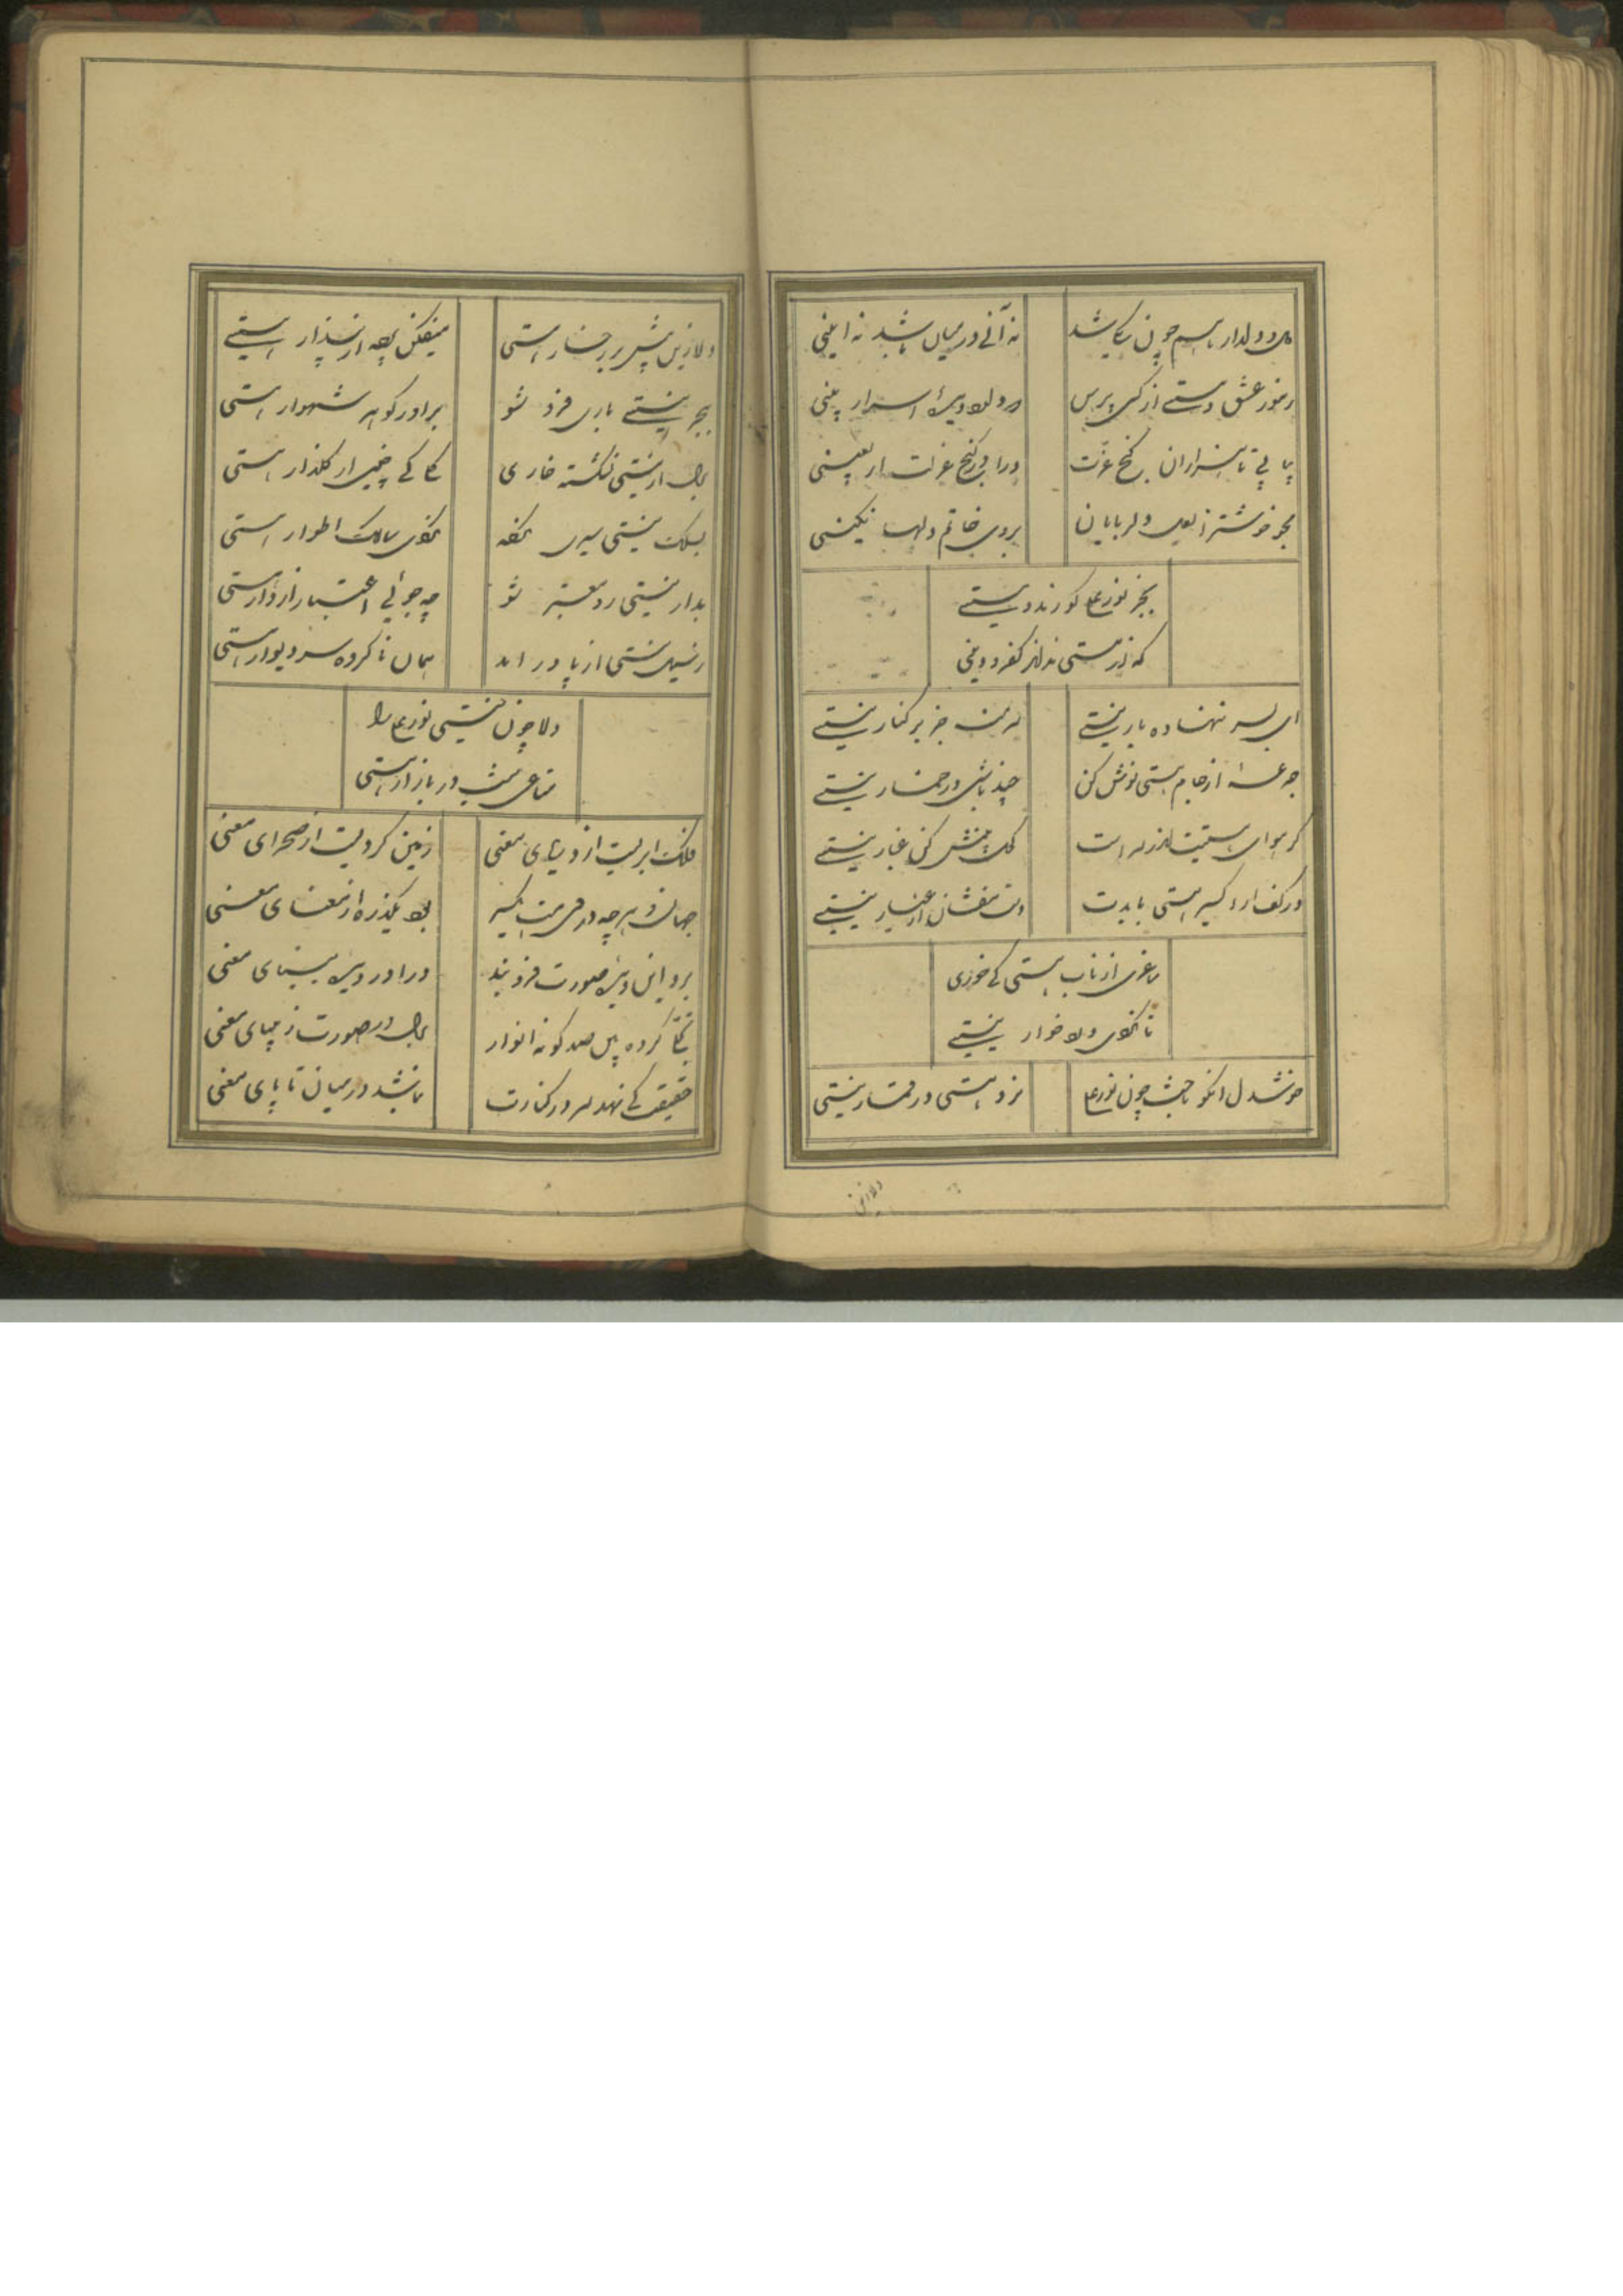 دل و دلدار باهم چون یکی شد نه آنی در میان باشد نه اینی
رموز عشق و مستی از کسی پرس در دل دیدۀ اسرار بینی
بیابی تا هزاران گنج عزت درا در کنج عزلت اربعینی
بجو خوشتر از لعل دلربایان بروی خاتم دلها نگینی
بجز نورعلی کو رند و مستی
که از مستی نداند کفر و دینی
ای بسر ننهاده بار نیستی سرمنه جز بر کنار نیستی
جرعۀ از جام هستی نوش کن چند باشی در خمار نیستی
گر هوای هستیت اندر سر است کحل بینش کن غبار نیستی
در کف ار اکسیر هستی بایدت دست مفشان از عیار نیستی
ساغری از ناب هستی کی خوری
تا نگردی دلا خوار نیستی
خوشدل آنکو باخت چون نورعلی نرد هستی در قمار نیستی
دلا زین
دلا زین پیش بر رخسار هستی میفکن پرده از پندار هستی
ببحر نیستی باری فرو شو براور گوهر شهوار هستی
بدل از نیستی نشکسته خاری کجا کی چینی از گلزار هستی
بملک نیستی سیری نکرده نگردی سالک اطوار هستی
بدار نیستی رو معتبر شو چه جوئی اعتبار از دار هستی
ز سیل نیستی از پا در امد بمان ناکرده سر دیوار هستی
دلا چون نیستی نورعلی را
متاعی نیست در بازار هستی
فلک ابریست از دریای معنی زمین گردیست از صحرای معنی
جهان و هرچه در وی هست یکسر بود یکذره از بیضای معنی
برو این دیدۀ صورت فرو بند درا در دیدۀ بینای معنی
تجلی کرده بین صد گونه انوار بدل در صورت زیبای معنی
حقیقت کی نهد سر در کنارت نباشد در میان تا پای معنی